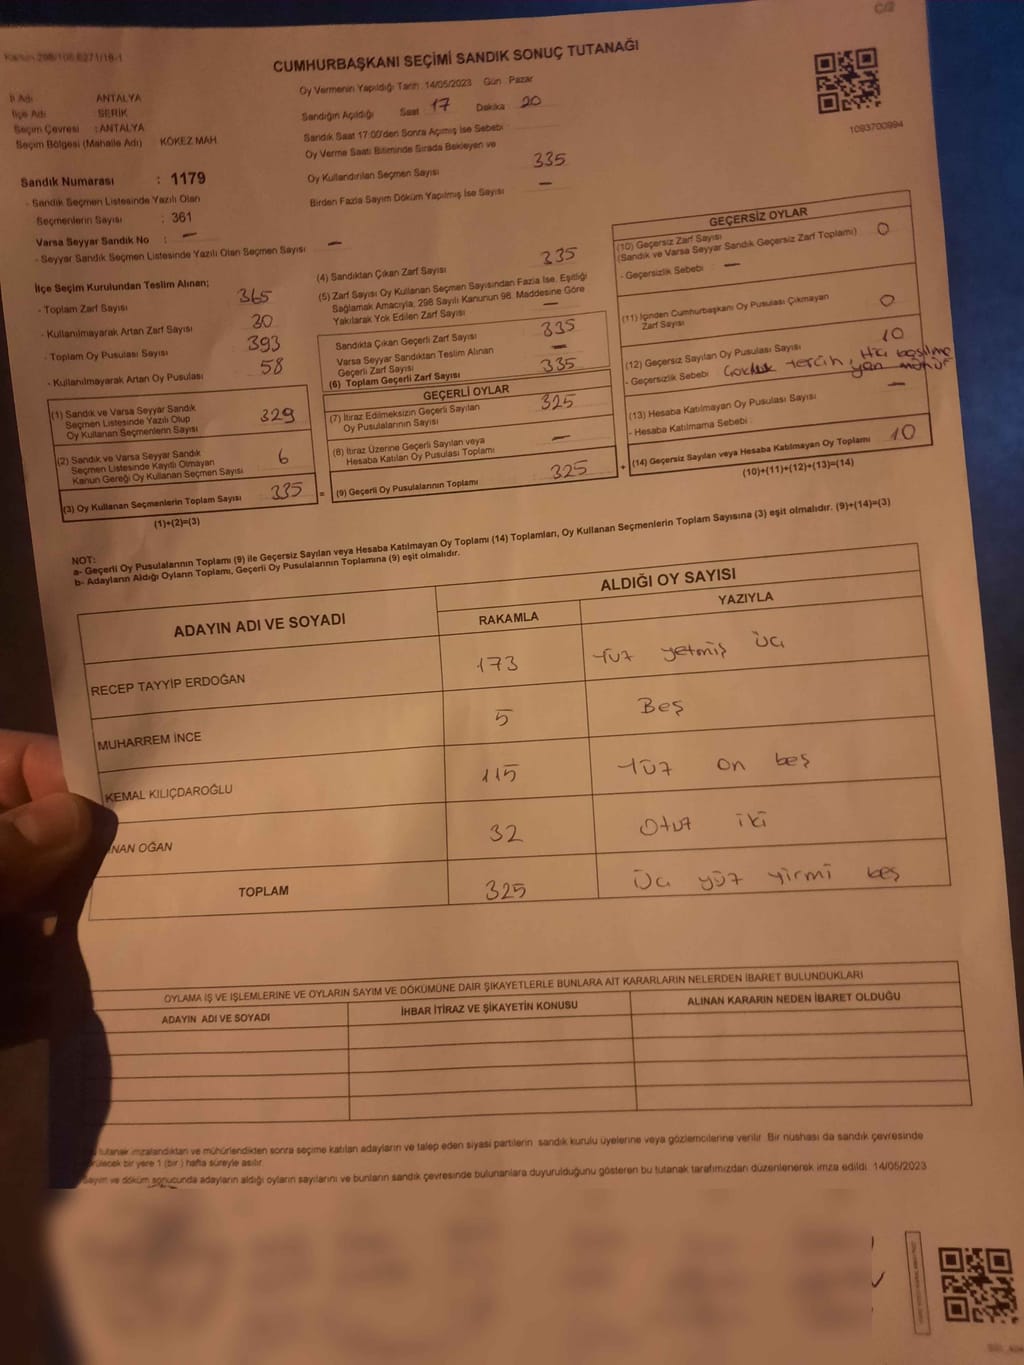 C/2
CUMHURBAŞKANI SEÇİMİ SANDIK SONUÇ TUTANAĞI
Oy Vermenin Yapıldığı Tarih :14/05/2023 Gün : Pazar
Sandığın Açıldığı Saat 17 Dakika 20
Sandık Saat 17:00'den Sonra Açılmış İse Sebebi
Oy Verme Saati Bitiminde Sırada Bekleyen ve
Oy Kullandırılan Seçmen Sayısı 335
Birden Fazla Sayım Döküm Yapılmış İse Sayısı —
1093700994
İl Adı ANTALYA
İlçe Adı : SERİK
Seçim Çevresi : ANTALYA
Seçim Bölgesi (Mahalle Adı) KÖKEZ MAH
Sandık Numarası : 1179
- Sandık Seçmen Listesinde Yazılı Olan
Seçmenlerin Sayısı : 361
Varsa Seyyar Sandık No : —
- Seyyar Sandık Seçmen Listesinde Yazılı Olan Seçmen Sayısı —
İlçe Seçim Kurulundan Teslim Alınan;
- Toplam Zarf Sayısı 365
- Kullanılmayarak Artan Zarf Sayısı 30
- Toplam Oy Pusulası Sayısı 393
- Kullanılmayarak Artan Oy Pusulası 58
(1) Sandık ve Varsa Seyyar Sandık
Seçmen Listesinde Yazılı Olup
Oy Kullanan Seçmenlerin Sayısı 329
(2) Sandık ve Varsa Seyyar Sandık
Seçmen Listesinde Kayıtlı Olmayan
Kanun Gereği Oy Kullanan Seçmen Sayısı 6
(3) Oy Kullanan Seçmenlerin Toplam Sayısı 335 =
(1)+(2)=(3)
(4) Sandıktan Çıkan Zarf Sayısı 335
(5) Zarf Sayısı Oy Kullanan Seçmen Sayısından Fazla İse, Eşitliği
Sağlamak Amacıyla, 298 Sayılı Kanunun 98. Maddesine Göre
Yakılarak Yok Edilen Zarf Sayısı —
Sandıkta Çıkan Geçerli Zarf Sayısı 335
Varsa Seyyar Sandıktan Teslim Alınan
Geçerli Zarf Sayısı —
(6) Toplam Geçerli Zarf Sayısı 335
GEÇERLİ OYLAR
(7) İtiraz Edilmeksizin Geçerli Sayılan
Oy Pusulalarının Sayısı 325
(8) İtiraz Üzerine Geçerli Sayılan veya
Hesaba Katılan Oy Pusulası Toplamı —
(9) Geçerli Oy Pusulalarının Toplamı 325 +
GEÇERSİZ OYLAR
(10) Geçersiz Zarf Sayısı
(Sandık ve Varsa Seyyar Sandık Geçersiz Zarf Toplamı) 0
- Geçersizlik Sebebi : —
(11) İçinden Cumhurbaşkanı Oy Pusulası Çıkmayan
Zarf Sayısı 0
(12) Geçersiz Sayılan Oy Pusulası Sayısı 10
- Geçersizlik Sebebi tercih, Hiç basılma
yan mühür
(13) Hesaba Katılmayan Oy Pusulası Sayısı —
- Hesaba Katılmama Sebebi :
(14) Geçersiz Sayılan veya Hesaba Katılmayan Oy Toplamı 10
(10)+(11)+(12)+(13)=(14)
NOT:
a- Geçerli Oy Pusulalarının Toplamı (9) ile Geçersiz Sayılan veya Hesaba Katılmayan Oy Toplamı (14) Toplamları, Oy Kullanan Seçmenlerin Toplam Sayısına (3) eşit olmalıdır. (9)+(14)=(3)
b- Adayların Aldığı Oyların Toplamı, Geçerli Oy Pusulalarının Toplamına (9) eşit olmalıdır.
ADAYIN ADI VE SOYADI
ALDIĞI OY SAYISI
RAKAMLA YAZIYLA
RECEP TAYYİP ERDOĞAN 173 Yüz yetmiş üç
MUHARREM İNCE 5 Beş
KEMAL KILIÇDAROĞLU 115 Yüz on beş
NAN OĞAN 32 Otuz iki
TOPLAM 325 Üç yüz yirmi beş
OYLAMA İŞ VE İŞLEMLERİNE VE OYLARIN SAYIM VE DÖKÜMÜNE DAİR ŞİKAYETLERLE BUNLARA AİT KARARLARIN NELERDEN İBARET BULUNDUKLARI
ADAYIN ADI VE SOYADI İHBAR İTİRAZ VE ŞİKAYETİN KONUSU ALINAN KARARIN NEDEN İBARET OLDUĞU
tutanak imzalandıktan ve mühürlendikten sonra seçime katılan adayların ve talep eden siyasi partilerin sandık kurulu üyelerine veya gözlemcilerine verilir. Bir nüshası da sandık çevresinde
rülecek bir yere 1 (bir ) hafta süreyle asılır.
Sayım ve döküm sonucunda adayların aldığı oyların sayılarını ve bunların sandık çevresinde bulunanlara duyurulduğunu gösteren bu tutanak tarafımızdan düzenlenerek imza edildi. 14/05/2023